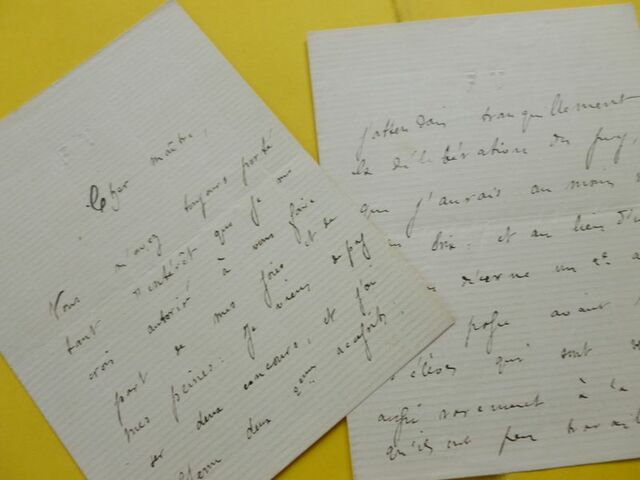 Cher maître,
Vous m'avez toujours porté
tant d'intérêt que je me
crois autorisé à vous faire
part de mes joies et de
mes peines. Je viens de
ser deux concours, et j'ai
deux 2ems accessits.
F T
J'attendais tranquillement
la délibération du jury,
que j'aurais au moins
prix : et au lieu d'
décerne un 2e a
avait
élèves qui sont
aussi rarement à la
qu'ils ont peu travail